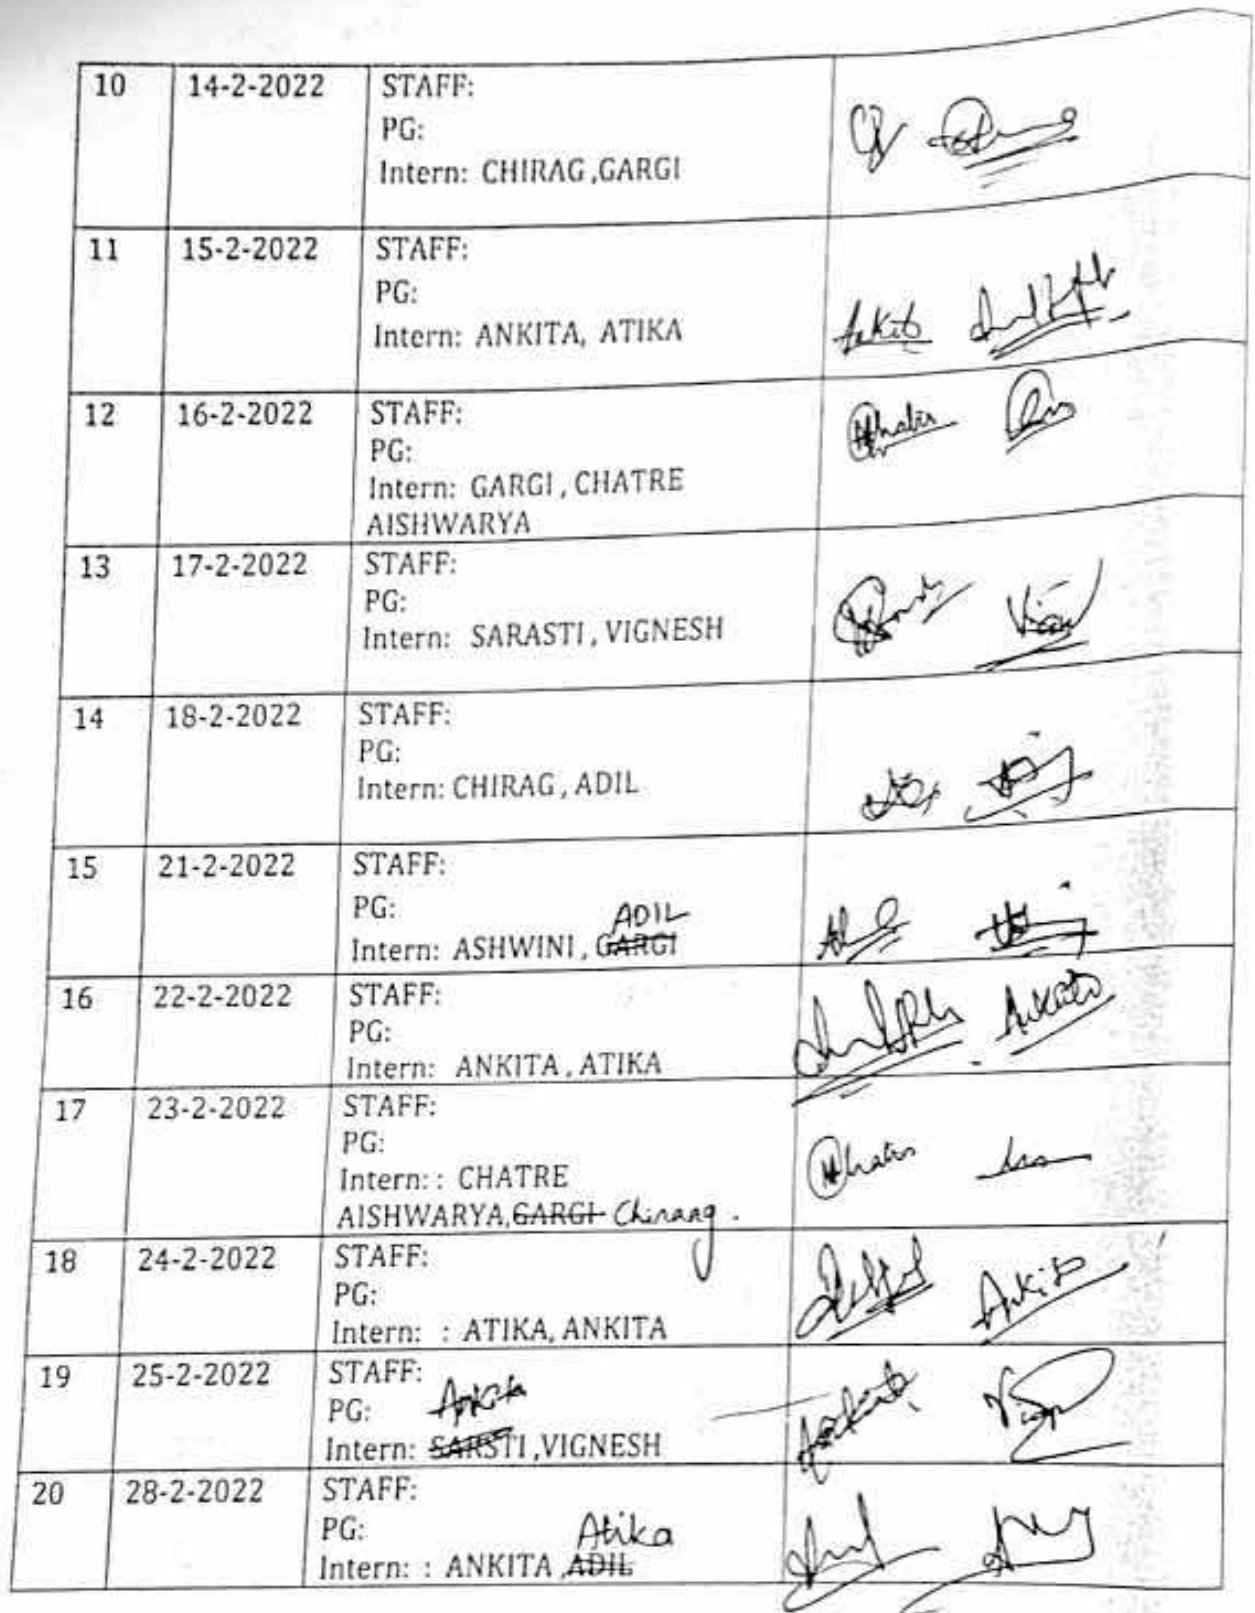 10 14-2-2022 STAFF:
PG:
Intern: CHIRAG ,GARGI
11 15-2-2022 STAFF:
PG:
Intern: ANKITA, ATIKA
Ankita
12 16-2-2022 STAFF:
PG:
Intern: GARGI , CHATRE
AISHWARYA
13 17-2-2022 STAFF:
PG:
Intern: SARASTI , VIGNESH
14 18-2-2022 STAFF:
PG:
Intern: CHIRAG , ADIL
15 21-2-2022 STAFF:
PG:
ADIL
Intern: ASHWINI , GARGI
16 22-2-2022 STAFF:
PG:
Intern: ANKITA , ATIKA
Ankita
17 23-2-2022 STAFF:
PG:
Intern: : CHATRE
AISHWARYA, GARGI Chiraag .
18 24-2-2022 STAFF:
PG:
Intern: : ATIKA, ANKITA
Ankita
19 25-2-2022 STAFF:
PG: Ankita
Intern: SARSTI ,VIGNESH
Ankita
20 28-2-2022 STAFF:
PG: Atika
Intern: : ANKITA ,ADIL